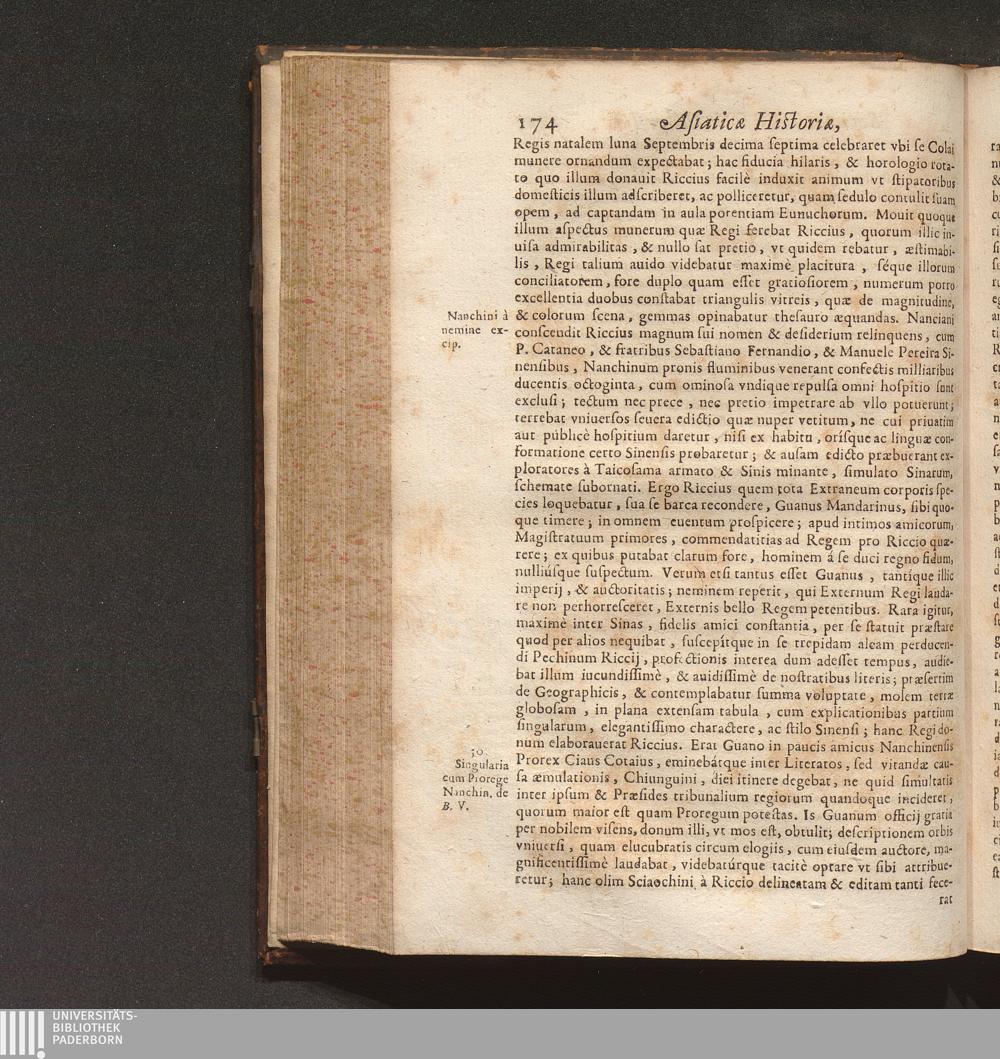 174 Aſiaticæ Hiſtoriæ,
Regis natalem luna Septembris decima ſeptima celebraret vbi ſe Colai
munere ornandum expectabat; hac fiducia hilaris, & horologio rota-
to quo illum donauit Riccius facilè induxit animum vt ſtipatoribus
domeſticis illum adſcriberet, ac polliceretur, quam ſedulo contulit ſuam
opem, ad captandam in aula potentiam Eunuchorum. Mouit quoque
illum aſpectus munerum quæ Regi ferebat Riccius, quorum illic in-
uiſa admirabilitas, & nullo ſat pretio, vt quidem rebatur, æſtimabi-
lis, Regi talium auido videbatur maximè placitura, ſéque illorum
conciliatorem, fore duplo quam eſſet gratioſiorem, numerum porro
excellentia duobus conſtabat triangulis vitreis, quæ de magnitudine,
Nanchini à
nemine ex-
cip.
& colorum ſcena, gemmas opinabatur theſauro æquandas. Nanciani
conſcendit Riccius magnum ſui nomen & deſiderium relinquens, cum
P. Cataneo, & fratribus Sebaſtiano Fernandio, & Manuele Pereira Si-
nenſibus, Nanchinum pronis fluminibus venerant confectis milliaribus
ducentis octoginta, cum ominoſa vndique repulſa omni hoſpitio ſunt
excluſi; tectum nec prece, nec pretio impetrare ab vllo potuerunt;
terrebat vniuerſos ſeuera edictio quæ nuper vetitum, ne cui priuatim
aut públicè hoſpitium daretur, niſi ex habitu, oríſque ac linguæ con-
formatione certo Sinenſis probaretur; & auſam edicto præbuerant ex-
ploratores à Taicoſama armato & Sinis minante, ſimulato Sinarum,
ſchemate ſubornati. Ergo Riccius quem tota Extraneum corporis ſpe-
cies loquebatur, ſua ſe barca recondere, Guanus Mandarinus, ſibi quo-
que timere; in omnem euentum proſpicere; apud intimos amicorum,
Magiſtratuum primores, commendatitias ad Regem pro Riccio quæ-
rere; ex quibus putabat clarum fore, hominem á ſe duci regno fidum,
nulliúſque ſuſpectum. Verum etſi tantus eſſet Guanus, tantíque illic
imperij, & auctoritatis; neminem reperit, qui Externum Regi lauda-
re non perhorreſceret, Externis bello Regem petentibus. Rara igitur,
maximè inter Sinas, fidelis amici conſtantia, per ſe ſtatuit præſtare
quod per alios nequibat, ſuſcepítque in ſe trepidam aleam perducen-
di Pechinum Riccij, profectionis interea dum adeſſet tempus, audie-
bat illum iucundiſſimè, & auidiſſimè de noſtratibus literis; præſertim
de Geographicis, & contemplabatur ſumma voluptate, molem terræ
globoſam, in plana extenſam tabula, cum explicationibus partium
ſingularum, elegantiſſimo charactere, ac ſtilo Sinenſi; hanc Regi do-
num elaborauerat Riccius. Erat Guano in paucis amicus Nanchinenſis
50.
Singularia
cum Prorege
Nanchin. de
B. V.
Prorex Ciaus Cotaius, eminebátque inter Literatos, ſed vitandæ cau-
ſa æmulationis, Chiunguini, diei itinere degebat, ne quid ſimultatis
inter ipſum & Præſides tribunalium regiorum quandoque incideret,
quorum maior eſt quam Proregum poteſtas. Is Guanum officij gratia
per nobilem viſens, donum illi, vt mos eſt, obtulit; deſcriptionem orbis
vniuerſi, quam elucubratis circum elogiis, cum eiuſdem auctore, ma-
gnificentiſſimè laudabat, videbatúrque tacitè optare vt ſibi attribue-
retur; hanc olim Sciaochini à Riccio delineatam & editam tanti fece-
rat
UNIVERSITÄTS-
BIBLIOTHEK
PADERBORN